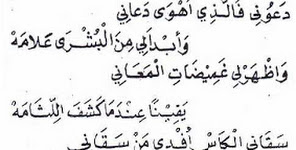 دَعُونِي فَالَّذِي أَهْوَى دَعَانِي
وَأَبْدَالِي مِنَ الْبُشْرَى عَلَامَهْ
وَاظْهَرْلِي غَمِيضَاتِ الْمَعَانِي
يَقِينًا عِنْدَمَا كَشَفَ اللِّثَامَهْ
سَقَانِي الْكَاسْ أَفْدِي مَنْ سَقَانِي